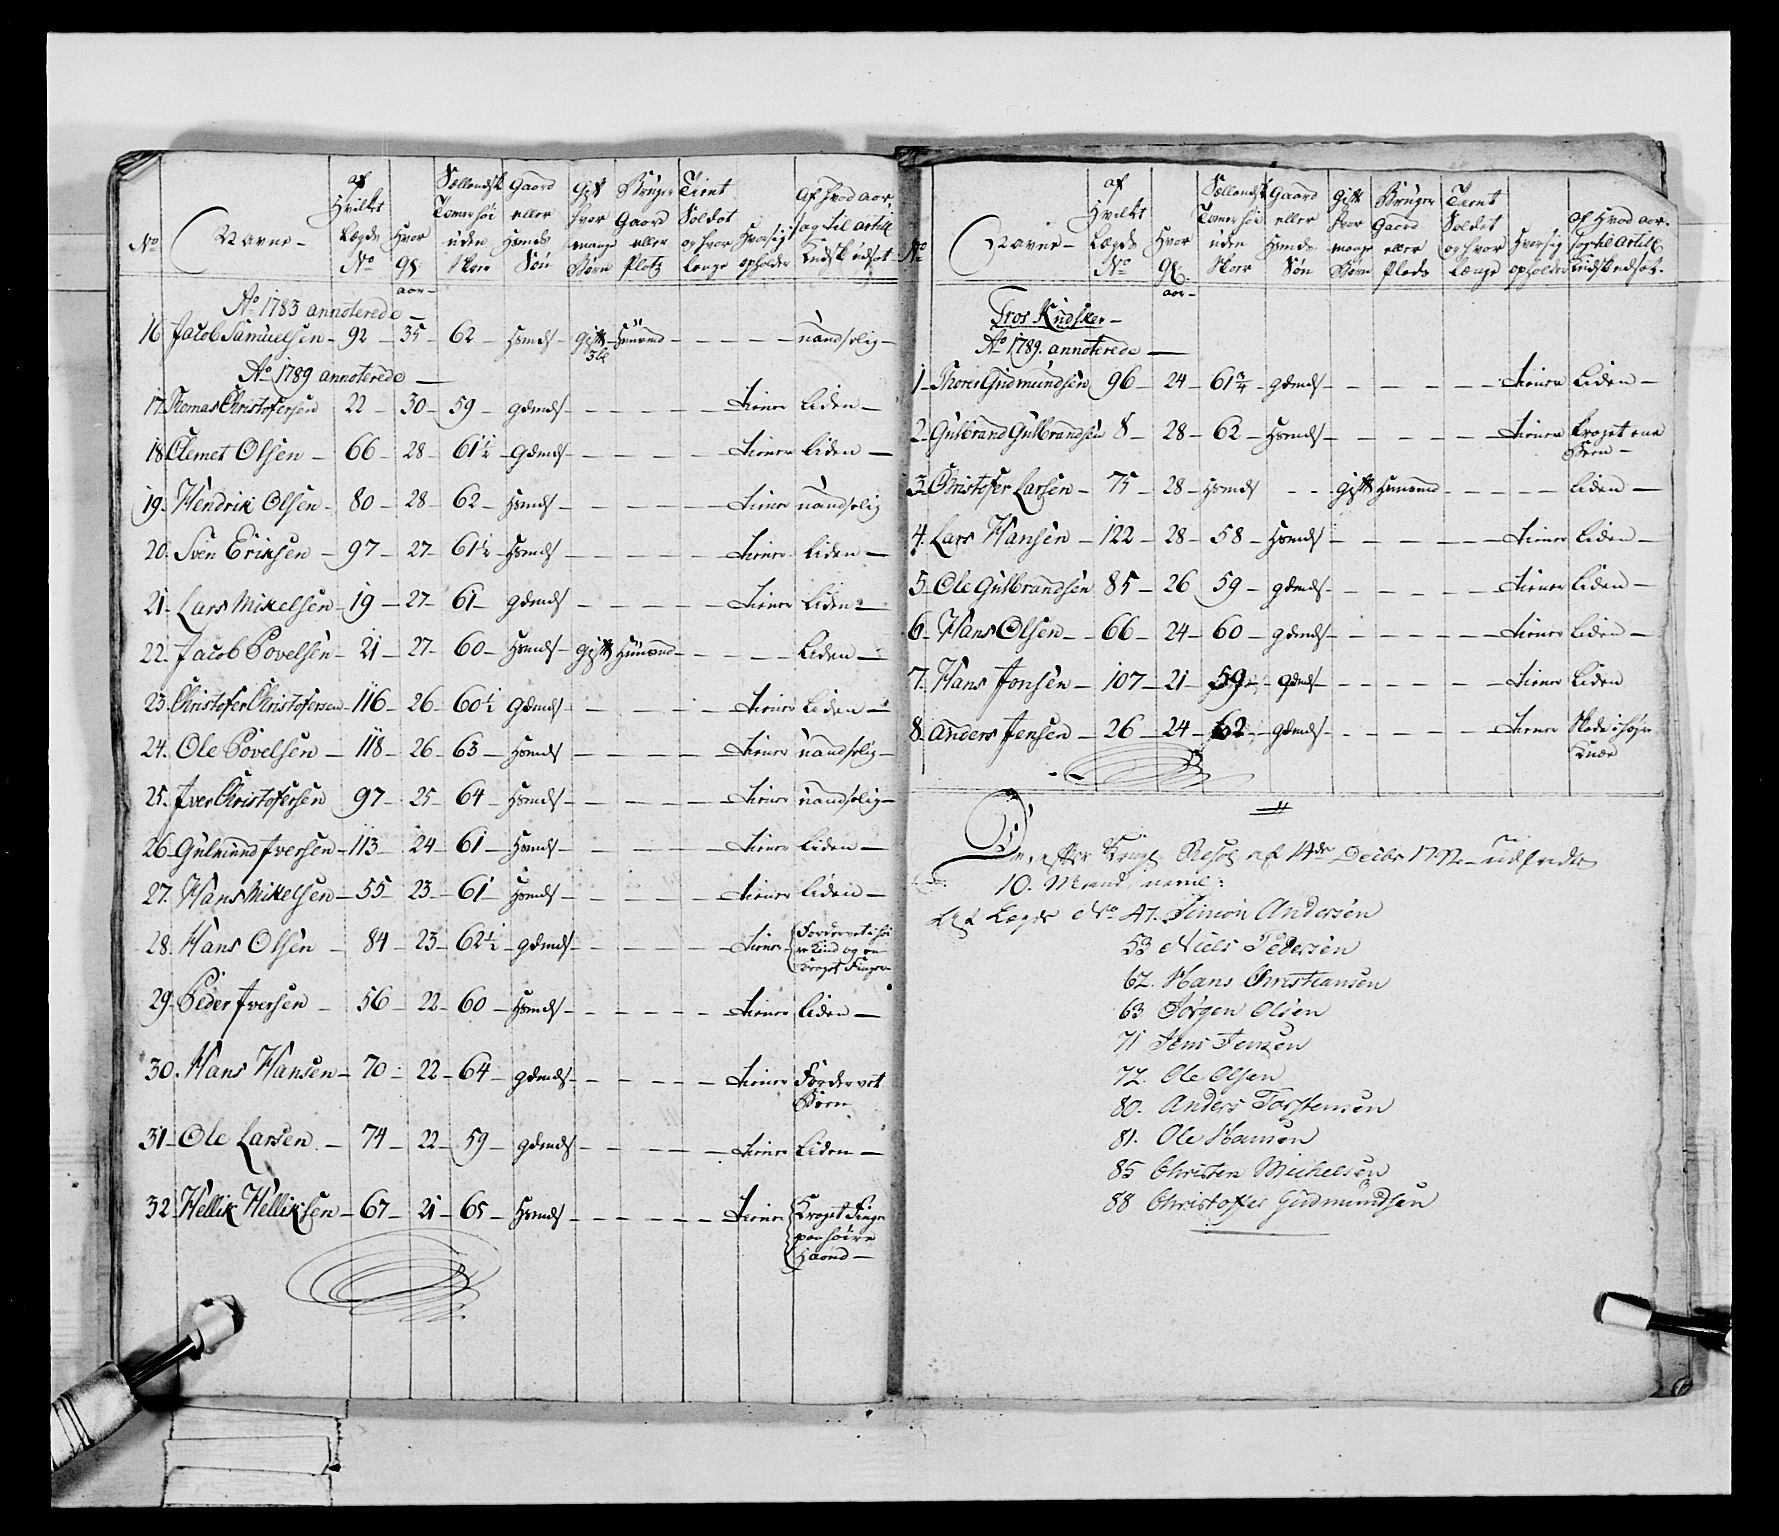 No
Navne
af Hvilket Lægds No
Hvor Gl. aar
Sællandsk Tomer høi uden Skoer
Gaard eller Huusmds Søn
Gift hvor mange Børn
Bruger Gaard eller Platz
Tient Soldat og hvor lenge
Hvor sig opholder
Af hvad aarsag til artill Kudsk udsat
Ao 1783 annoterede
16 Jacob Samuelsen 92 35 62 Hsmds Gift 3 Huusmd uandselig
Ao 1789 annoterede
17 Thomas Christofersen 22 30 59 gdmds tiener liden
18 Clemet Olsen 66 28 61½ gdmds tiener liden
19 Hendrik Olsen 80 28 62 Hsmds tiener uandselig
20 Sven Eriksen 97 27 61½ Hsmds tiener liden
21 Lars Mikelsen 19 27 61 gdmds tiener liden
22 Jacob Povelsen 21 27 60 Hsmds gift Huusmd liden
23 Christofer Christofersen 116 26 60½ gdmds tiener liden
24 Ole Povelsen 118 26 63 Hsmds tiener uandselig
25 Jver Christofersen 97 25 64 Hsmds tiener uandselig
26 Gulmund Jversen 113 24 61 Hsmds tiener liden
27 Hans Mikelsen 55 23 61 Hsmds tiener liden
28 Hans Olsen 84 23 62½ gdmds tiener Fordervet i høire Kind og en Kroget Finger
29 Peder Jversen 56 22 60 Hsmds tiener liden
30 Hans Hansen 70 22 64 gdmds tiener Fordervet Been
31 Ole Larsen 74 22 59 gdmds tiener liden
32 Hellik Helliksen 67 21 65 Hsmds tiener Kroget Finger paa høire Haand
No
Navne
af Hvilket Lægds No
Hvor Gl. aar
Sællandsk Tomer høi uden Skoer
Gaard eller Hsmds Søn
Gift hvor mange Børn
Bruger Gaard eller Plads
Tient Soldat og hvor længe
Hvor sig opholder
af Hvad aarsag til artill Kudsk udsat
Tros Kudsker
Ao 1789 annoterede
1 Thorer Gudmundsen 96 24 61¾ gdmds tiener liden
2 Gulbrand Gulbrandsen 8 28 62 Hsmds tiener Kroget ene Been
3 Christofer Larsen 75 28 Hsmds gift Huusmd liden
4 Lars Hansen 122 28 58 Hsmds tiener liden
5 Ole Gulbrandsen 85 26 59 gdmds tiener liden
6 Hans Olsen 66 24 60 gdmds tiener liden
7 Hans Jonsen 107 21 59 gdmds tiener liden
8 Anders Jensen 26 24 62 gdmds tiener Skade i høyre Knæe
De efter Kongl. Resol af 14de Decbr 1792 udsendte
10 Mænd, navnl:
Lægds No 47. Simon Andersen
53 Niels Pedersen
62. Hans Christiansen
63 Jørgen Olsen
71 Jens Jensen
72. Ole Olsen
80. Anders Torstensen
81. Ole Hansen
85 Christen Michelsen
88 Christoffer Gudmundsen